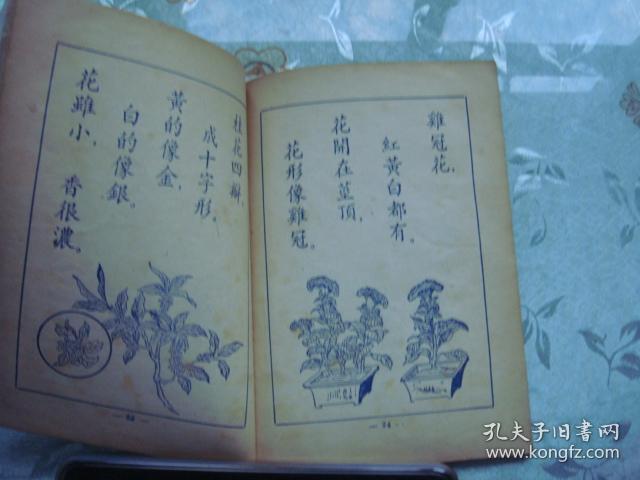 雞冠花，
紅黃白都有。
花開在莖頂，
花形像雞冠。
桂花四瓣，
成十字形。
黃的像金，
白的像銀。
花雖小，香很濃。
孔夫子旧书网
kongfz.com